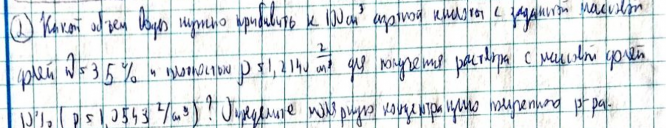 ② Какой объем воды нужно прибавить к 100 см³ азотной кислоты с заданной массовой
долей ω = 35 % и плотностью ρ = 1,2140 г/см³ для получения раствора с массовой долей
10 % (ρ = 1,0543 г/см³)? Определите молярную концентрацию полученного р-ра.